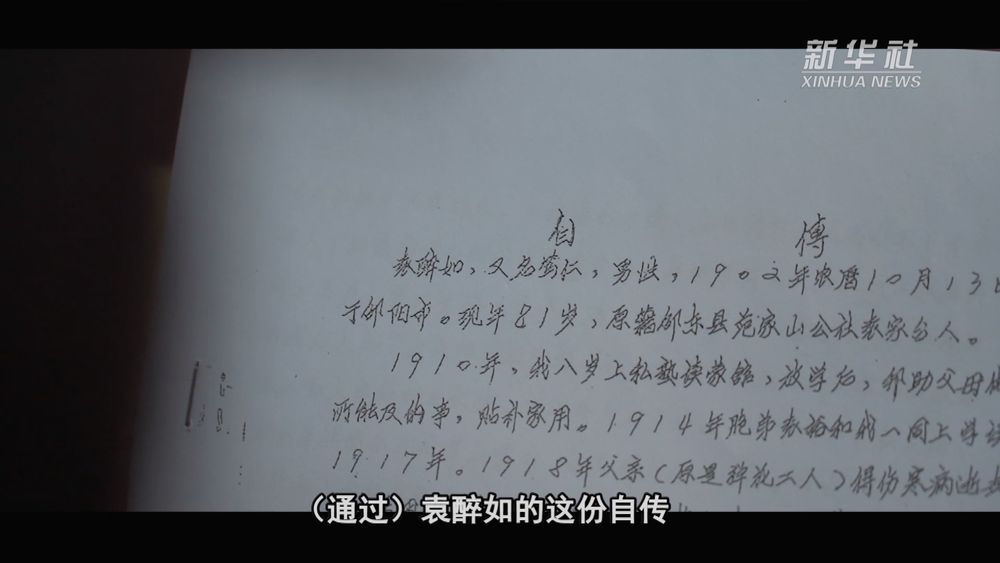 新华社
XINHUA NEWS
自 传
袁醉如，又名蔼仁，男性，1902年农历10月13日
于邵阳市。现年81岁，原籍邵东县范家山公社袁家台人。
1910年，我八岁上私塾读蒙馆，放学后，帮助父母做
所能及的事，贴补家用。1914年胞弟袁裕和我一同上学读
1917年。1918年父亲（原是弹花工人）得伤寒病逝
（通过）袁醉如的这份自传